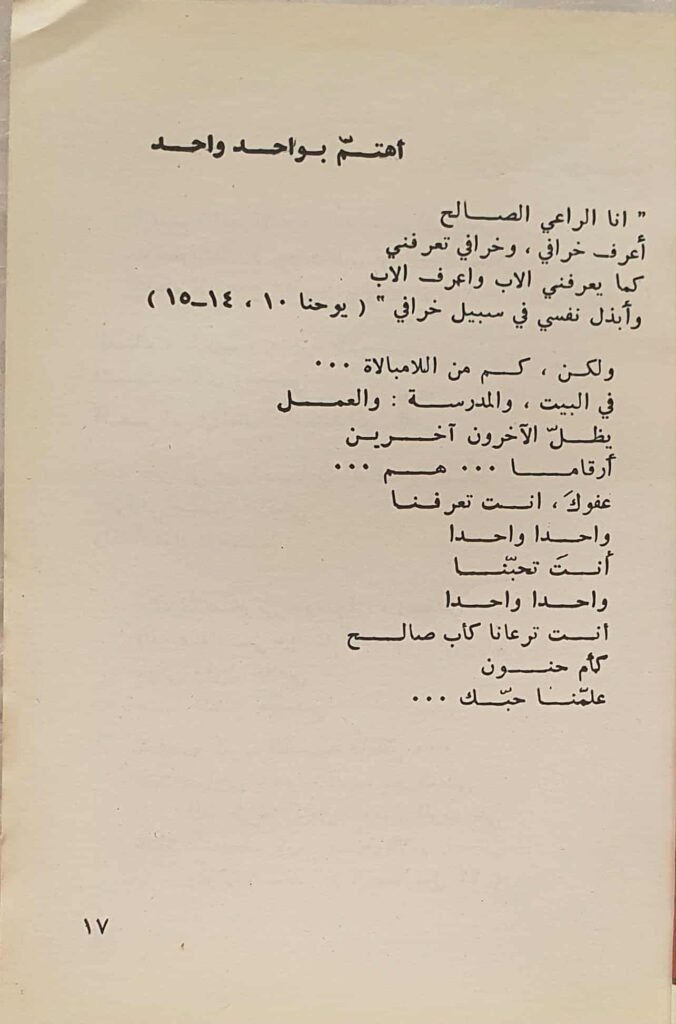 اهتمّ بواحد واحد
" انا الراعي الصالح
أعرف خرافي ، وخرافي تعرفني
كما يعرفني الاب واعرف الاب
وأبذل نفسي في سبيل خرافي " ( يوحنا ١٠ ، ١٤–١٥ )
ولكن ، كم من اللامبالاة ...
في البيت ، والمدرسة : والعمل
يظلّ الآخرون آخرين
أرقاما ... هم ...
عفوكَ ، انت تعرفنا
واحدا واحدا
أنتَ تحبّنا
واحدا واحدا
أنت ترعانا كأب صالح
كأم حنون
علمّنا حبّك ...
١٧